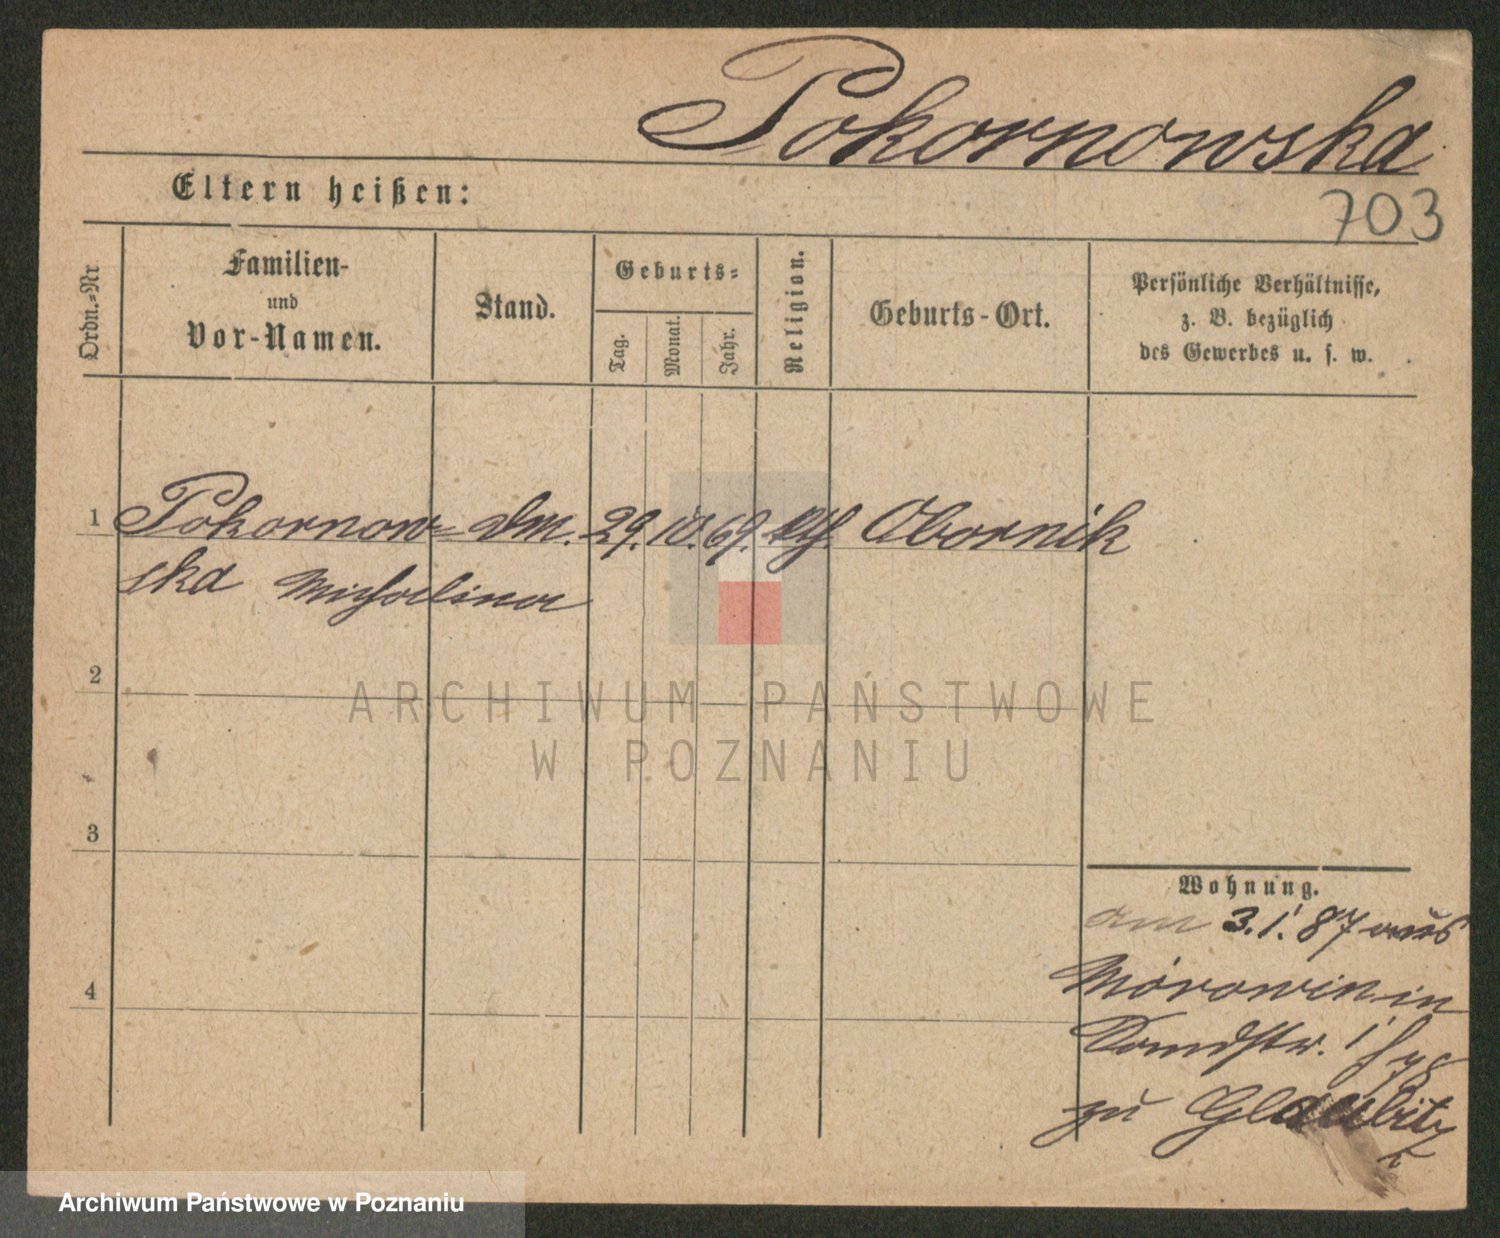 Pokornowska
Eltern heißen:
703
Ordn.=Nr
Familien-
und
Vor-Namen.
Stand.
Geburts=
Tag.
Monat.
Jahr.
Religion.
Geburts-Ort.
Persönliche Verhältnisse,
z. B. bezüglich
des Gewerbes u. s. w.
1 Pokornow= dm. 29. 10. 69. kth. Obornik
ska Michalina
2
3
4
Wohnung.
am 3.1. 87 aus
in
zu Glaubitz
ARCHIWUM PAŃSTWOWE
W POZNANIU
Archiwum Państwowe w Poznaniu